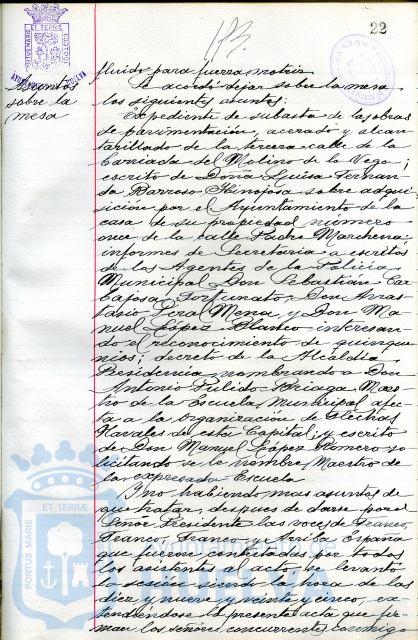 22
Asuntos
sobre la
mesa
fluido para fuerza motriz
Se acordó dejar sobre la mesa
los siguientes asuntos:
Expediente de subasta de las obras
de pavimentación, acerado y alcan-
tarillado de la tercera calle de la
Barriada del Molino de la Vega;
escrito de Doña Luisa Fernan-
da Barroso Hinojosa sobre adqui-
sición por el Ayuntamiento de la
casa de su propiedad número
once de la calle Padre Marchena:
informes de Secretaría a escritos
de los Agentes de la Policía
Municipal Don Sebastián Car-
bajosa Fortunato, Don Anas-
tasio Pera Mena, y Don Ma-
nuel López Blanco interesan-
do el reconocimiento de quinque-
nios; decreto de la Alcaldía
Presidencia nombrando a Don
Antonio Pulido Maes-
tro de la Escuela Municipal afec-
ta a la organización de Flechas
Navales de esta Capital; y escrito
de Don Manuel López Romero so-
licitando se le nombre Maestro de
la expresada Escuela
Y no habiendo mas asuntos de
que tratar, despues de darse por el
Señor Presidente las voces de Franco,
Franco, Franco y Arriba España
que fueron contestadas por todos
los asistentes al acto, se levantó
la sesión siendo la hora de las
diez y nueve y veinte y cinco, ex-
tendiéndose la presente acta que fir-
man los señores concurrentes conmigo
PORTUS MARIS
ET TERRÆ
CUSTODIA
Ayuntamiento de